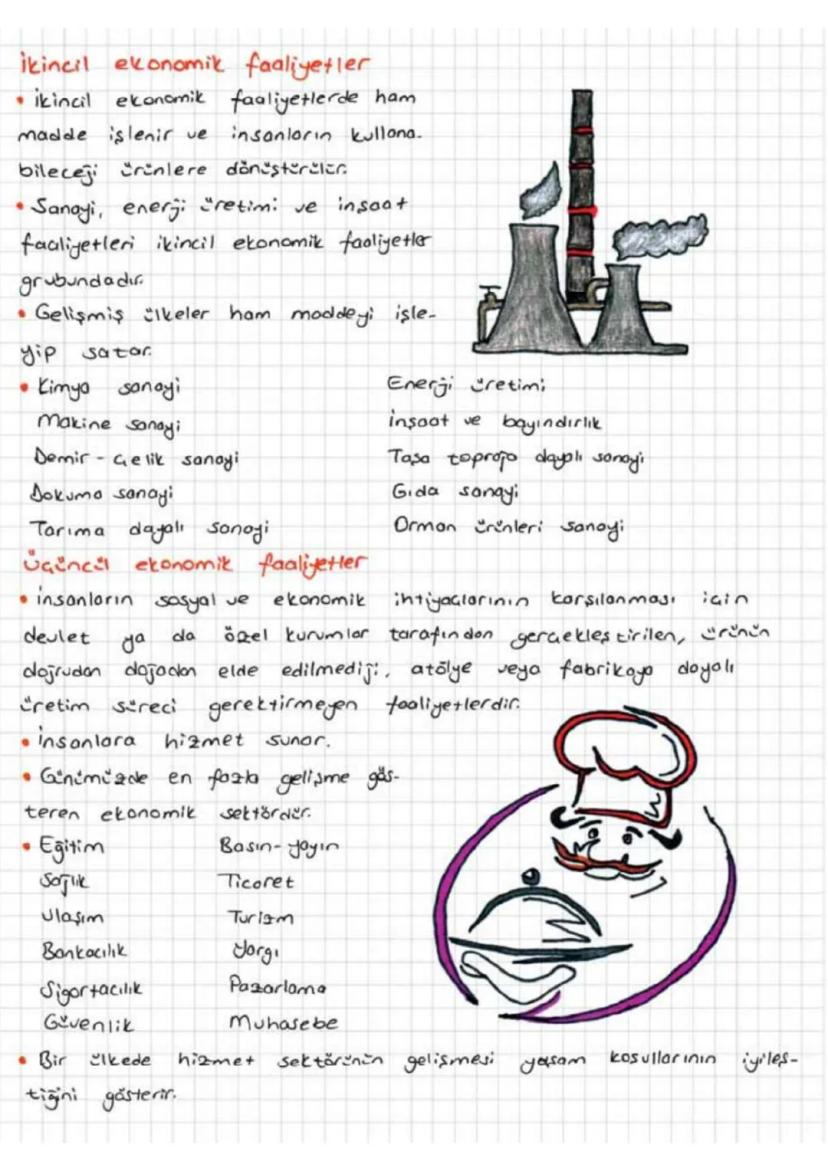 İkincil ekonomik faaliyetler
• İkincil ekonomik faaliyetlerde ham
madde işlenir ve insanların kullana-
bileceği ürünlere dönüştürülür.
• Sanayi, enerji üretimi ve inşaat
faaliyetleri ikincil ekonomik faaliyetler
grubundadır.
• Gelişmiş ülkeler ham maddeyi işle-
yip satar.
• Kimya sanayi
Makine sanayi
Demir - çelik sanayi
Dokuma sanayi
Tarıma dayalı sanayi
Enerji üretimi
İnşaat ve bayındırlık
Taşa toprağa dayalı sanayi
Gıda sanayi
Orman ürünleri sanayi
Üçüncül ekonomik faaliyetler
• İnsanların sosyal ve ekonomik ihtiyaçlarının karşılanması için
devlet ya da özel kurumlar tarafından gerçekleştirilen, ürünün
doğrudan doğadan elde edilmediği, atölye veya fabrikaya dayalı
üretim süreci gerektirmeyen faaliyetlerdir.
• İnsanlara hizmet sunar.
• Günümüzde en fazla gelişme gös-
teren ekonomik sektördür.
• Eğitim
Sağlık
Ulaşım
Bankacılık
Sigortacılık
Güvenlik
Basın-yayın
Ticaret
Turizm
Yargı
Pazarlama
Muhasebe
• Bir ülkede hizmet sektörünün gelişmesi yaşam koşullarının iyileş-
tiğini gösterir.